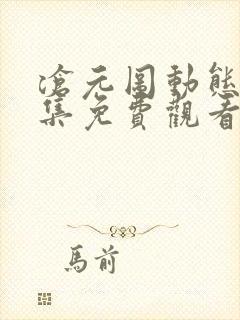 滄元圖動態
集免費觀看
馬前